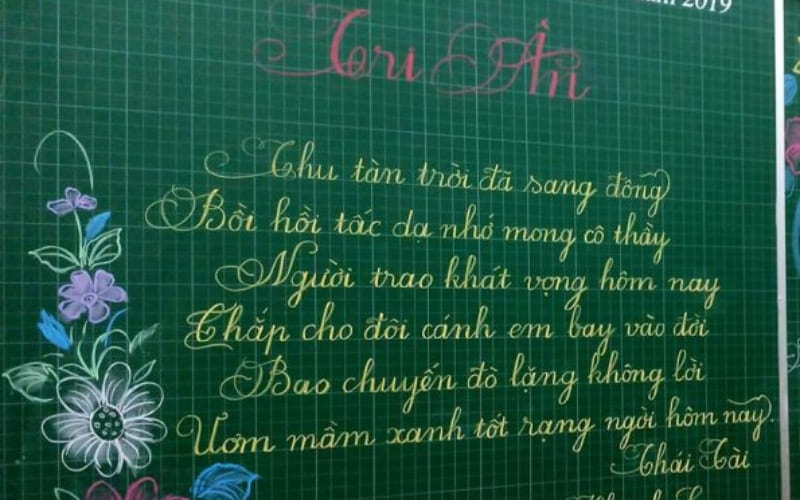 2019
Tri Ân
Thu tàn trời đã sang đông
Bồi hồi tấc dạ nhớ mong cô thầy
Người trao khát vọng hôm nay
Chắp cho đôi cánh em bay vào đời
Bao chuyến đò lặng không lời
Ươm mầm xanh tốt rạng ngời hôm nay.
Thái Tài